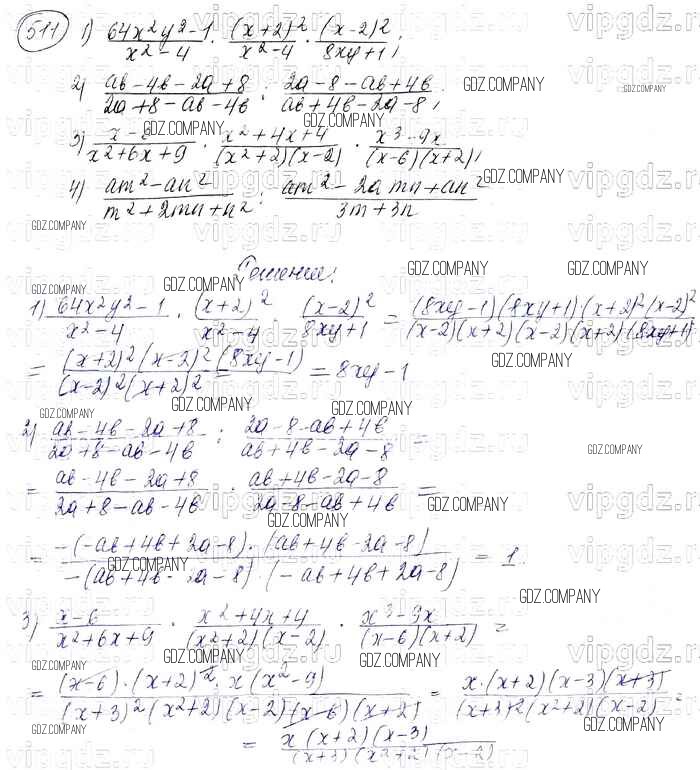 511 1) (64x²y²-1)/(x²-4) · (x+2)²/(x²-4) · (x-2)²/(8xy+1);
2) (ab-4b-2a+8)/(2a+8-ab-4b) : (2a-8-ab+4b)/(ab+4b-2a-8);
3) (x-6)/(x²+6x+9) · (x²+4x+4)/((x²+2)(x-2)) · (x³-9x)/((x-6)(x+2));
4) (am²-an²)/(m²+2mn+n²) : (am²-2amn+an²)/(3m+3n)
Решение:
1) (64x²y²-1)/(x²-4) · (x+2)²/(x²-4) · (x-2)²/(8xy+1) = ((8xy-1)(8xy+1)(x+2)²(x-2)²)/((x-2)(x+2)(x-2)(x+2)(8xy+1)
= ((x+2)²(x-2)²(8xy-1))/((x-2)²(x+2)²) = = 8xy-1
2) (ab-4b-2a+8)/(2a+8-ab-4b) : (2a-8-ab+4b)/(ab+4b-2a-8) =
= (ab-4b-2a+8)/(2a+8-ab-4b) · (ab+4b-2a-8)/(2a-8-ab+4b) =
= (-(-ab+4b+2a-8)·(ab+4b-2a-8))/(-(ab+4b-2a-8)·(-ab+4b+2a-8)) = 1.
3) (x-6)/(x²+6x+9) · (x²+4x+4)/((x²+2)(x-2)) · (x³-9x)/((x-6)(x+2)) =
= ((x-6)·(x+2)²·x(x²-9))/((x+3)²(x²+2)(x-2)(x-6)(x+2)) = (x·(x+2)(x-3)(x+3))/((x+3)²(x²+2)(x-2)) =
= (x(x+2)(x-3))/((x+3)(x²+2)(x-2))
GDZ.COMPANY
vipgdz.ru